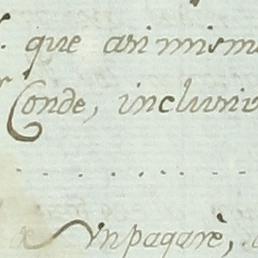 que asi mism
Conde, inclusiv
Un pagarè,